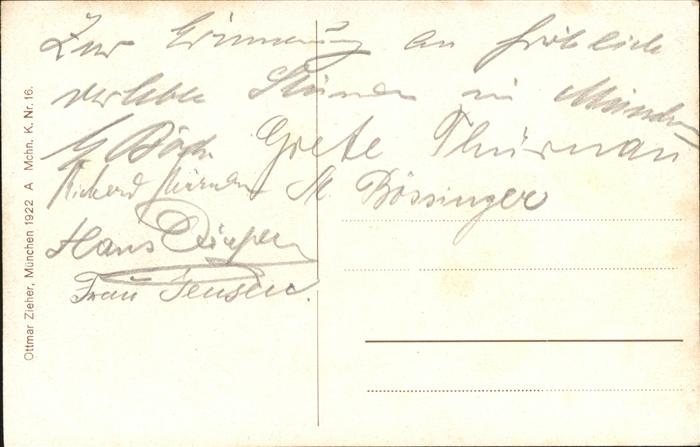 Zur Erinnerung an fröhlich
verlebte Stunden in München
G. Grete Thürnau
Richard Thürnau M. Bössinger
Hans
Frau Jensen.
Ottmar Zieher, München 1922 A Mchn. K. Nr. 16.